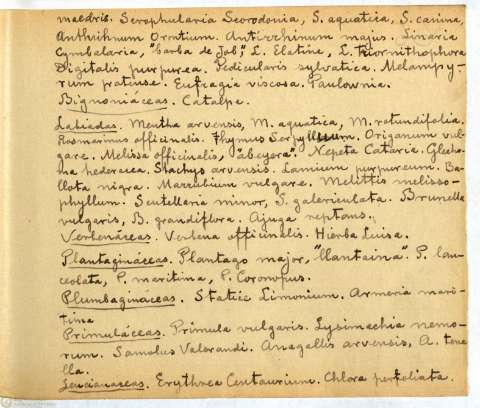 maedris. Scrophularia Scorodonia, S. aquatica, S. canina,
Anthrihnum Orontium. Antirrhinum majus. Linaria
Cymbalaria, "barba de Job", L. Elatine, L. triornithophora
Digitalis purpurea. Pedicularis sylvatica. Melampy-
rum patense. Eufragia viscosa. Paulownia.
Bignoniáceas. Catalpa.
Labiadas. Mentha arvensis, M. aquatica, M. rotundifolia.
Rosmarinus officinalis. Thymus Serpyllum. Origanum vul-
gare. Melissa officinalis, "abeyera". Nepeta Cataria. Glecho-
ma hederacea. Stachys arvensis. Lamium purpureum. Ba-
llota nigra. Marrubium vulgare. Melittis melisso-
phyllum. Scutellaria minor, S. galericulata. Brunella
vulgaris, B. grandiflora. Ajuga reptans.
Verbenáceas. Verbena officinalis. Hierba Luisa.
Plantagináceas. Plantago major, "llantaina". P. lan-
ceolata, P. maritina, P. Coronopus.
Plumbagináceas. Statice Limonium. Armeria marí-
tima
Primuláceas. Primula vulgaris. Lysimachia nemo-
rum. Samolus Valerandi. Anagallis arvensis, A. tene
lla.
Gencianaceas. Erythrea Centaurium. Chlora perfoliata.